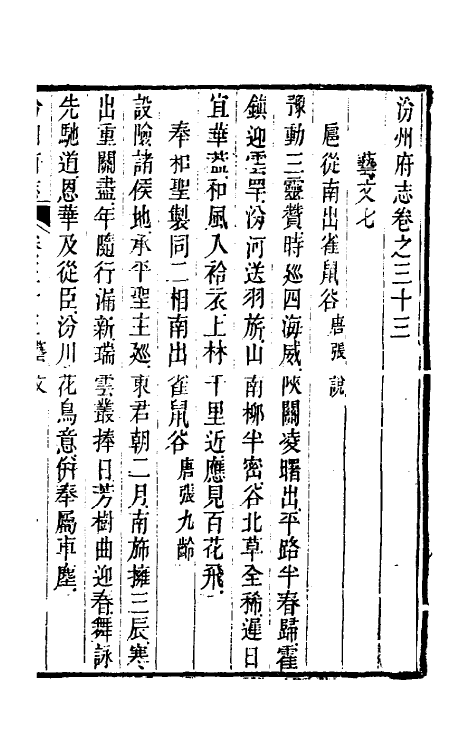 汾州府志卷之三十三
藝文七
扈從南出雀鼠谷 唐張說
豫動三靈贊時廵四海威陜關凌曙出平路半春歸霍
鎮迎雲罕汾河送羽旂山南柳半密谷北草全稀遲日
宜華葢和風入袷衣上林千里近應見百花飛
奉和聖製同二相南出雀鼠谷 唐張九齡
設險諸侯地承平聖主廵東君朝二月南斾擁三辰寒
出重關盡年隨行漏新瑞雲叢捧日芳樹曲迎春舞詠
先馳道恩華及從臣汾川花鳥意倂奉屬車塵